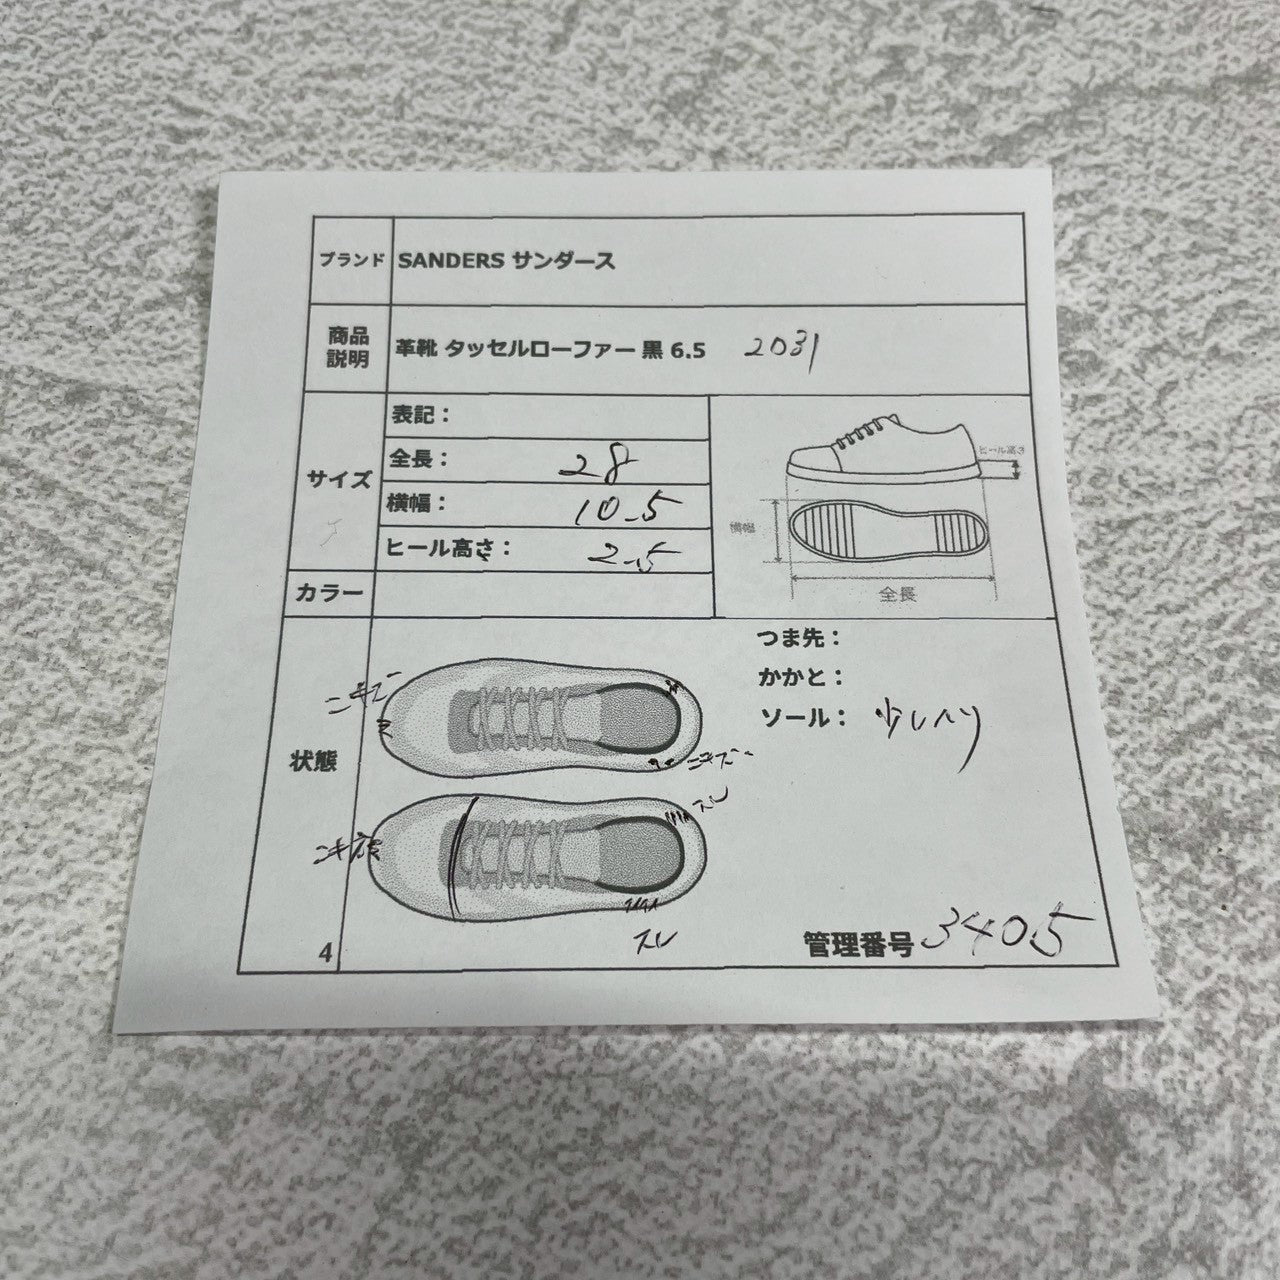 ブランド SANDERS サンダース
商品説明 革靴 タッセルローファー 黒 6.5 2031
サイズ
表記：
全長： 28
横幅： 10.5
ヒール高さ： 2.5
ヒール高さ
横幅
全長
カラー
状態
つま先：
かかと：
ソール： 少しヘリ
コキズ
コキズ
スレ
コキズ
スレ
4
管理番号 3405